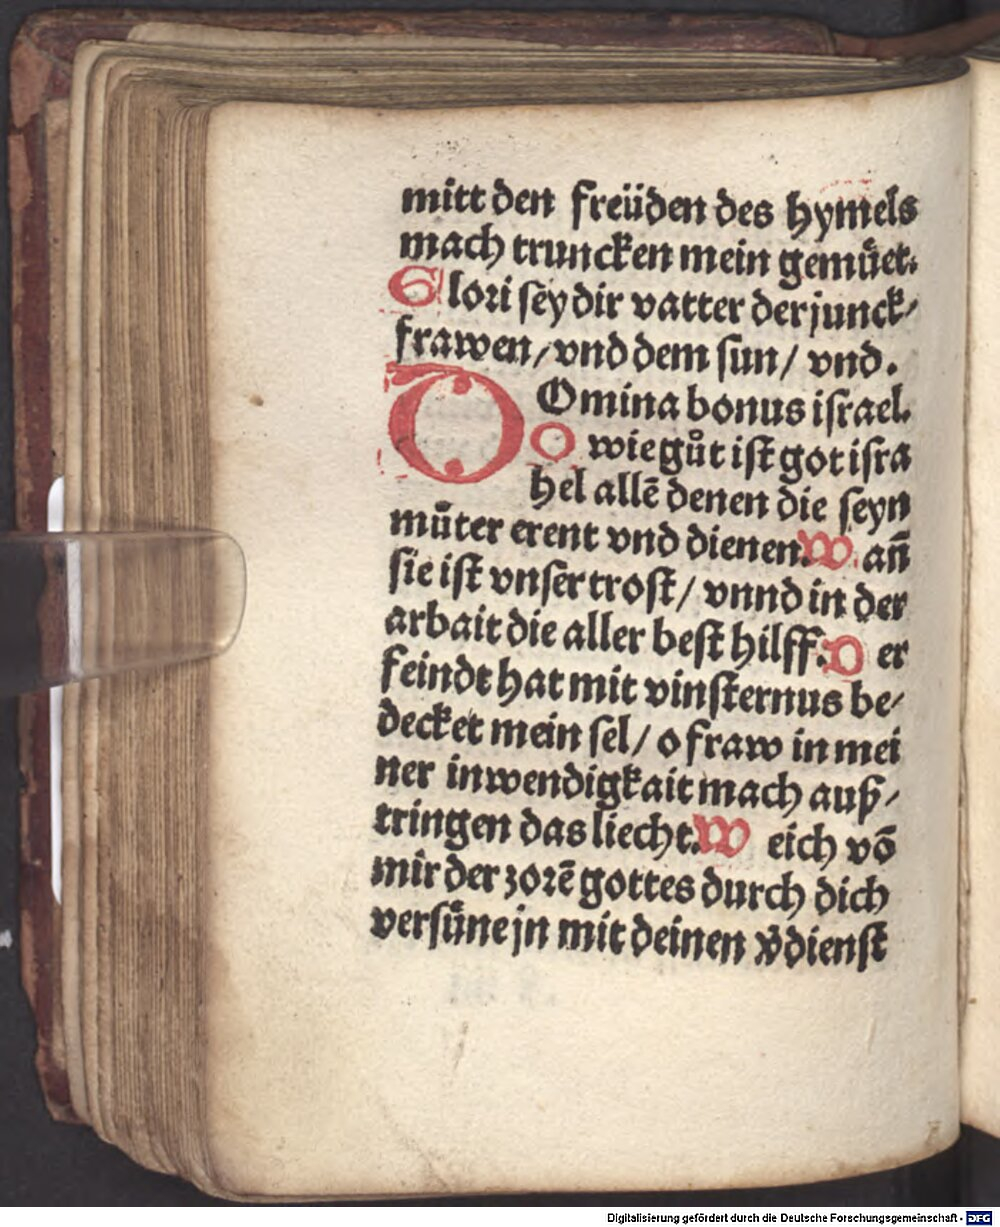 mitt den freüden des hymels
mach truncken mein gemuͤet.
Glori sey dir vatter der junck⸗
frawen/ vnd dem sun/ vnd.
DOmina bonus israel.
O wie guͦt ist got isra
hel allē denen die seyn
muͦter erent vnd dienen. Wañ
sie ist vnser trost/ vnnd in der
arbait die aller best hilff. Der
feindt hat mit vinsternus be⸗
decket mein sel/ o fraw in mei
ner inwendigkait mach auß⸗
tringen das liecht. Weich vō
mir der zorē gottes durch dich
versuͤne jn mit deinen v̄dienst
Digitalisierung gefördert durch die Deutsche Forschungsgemeinschaft - DFG